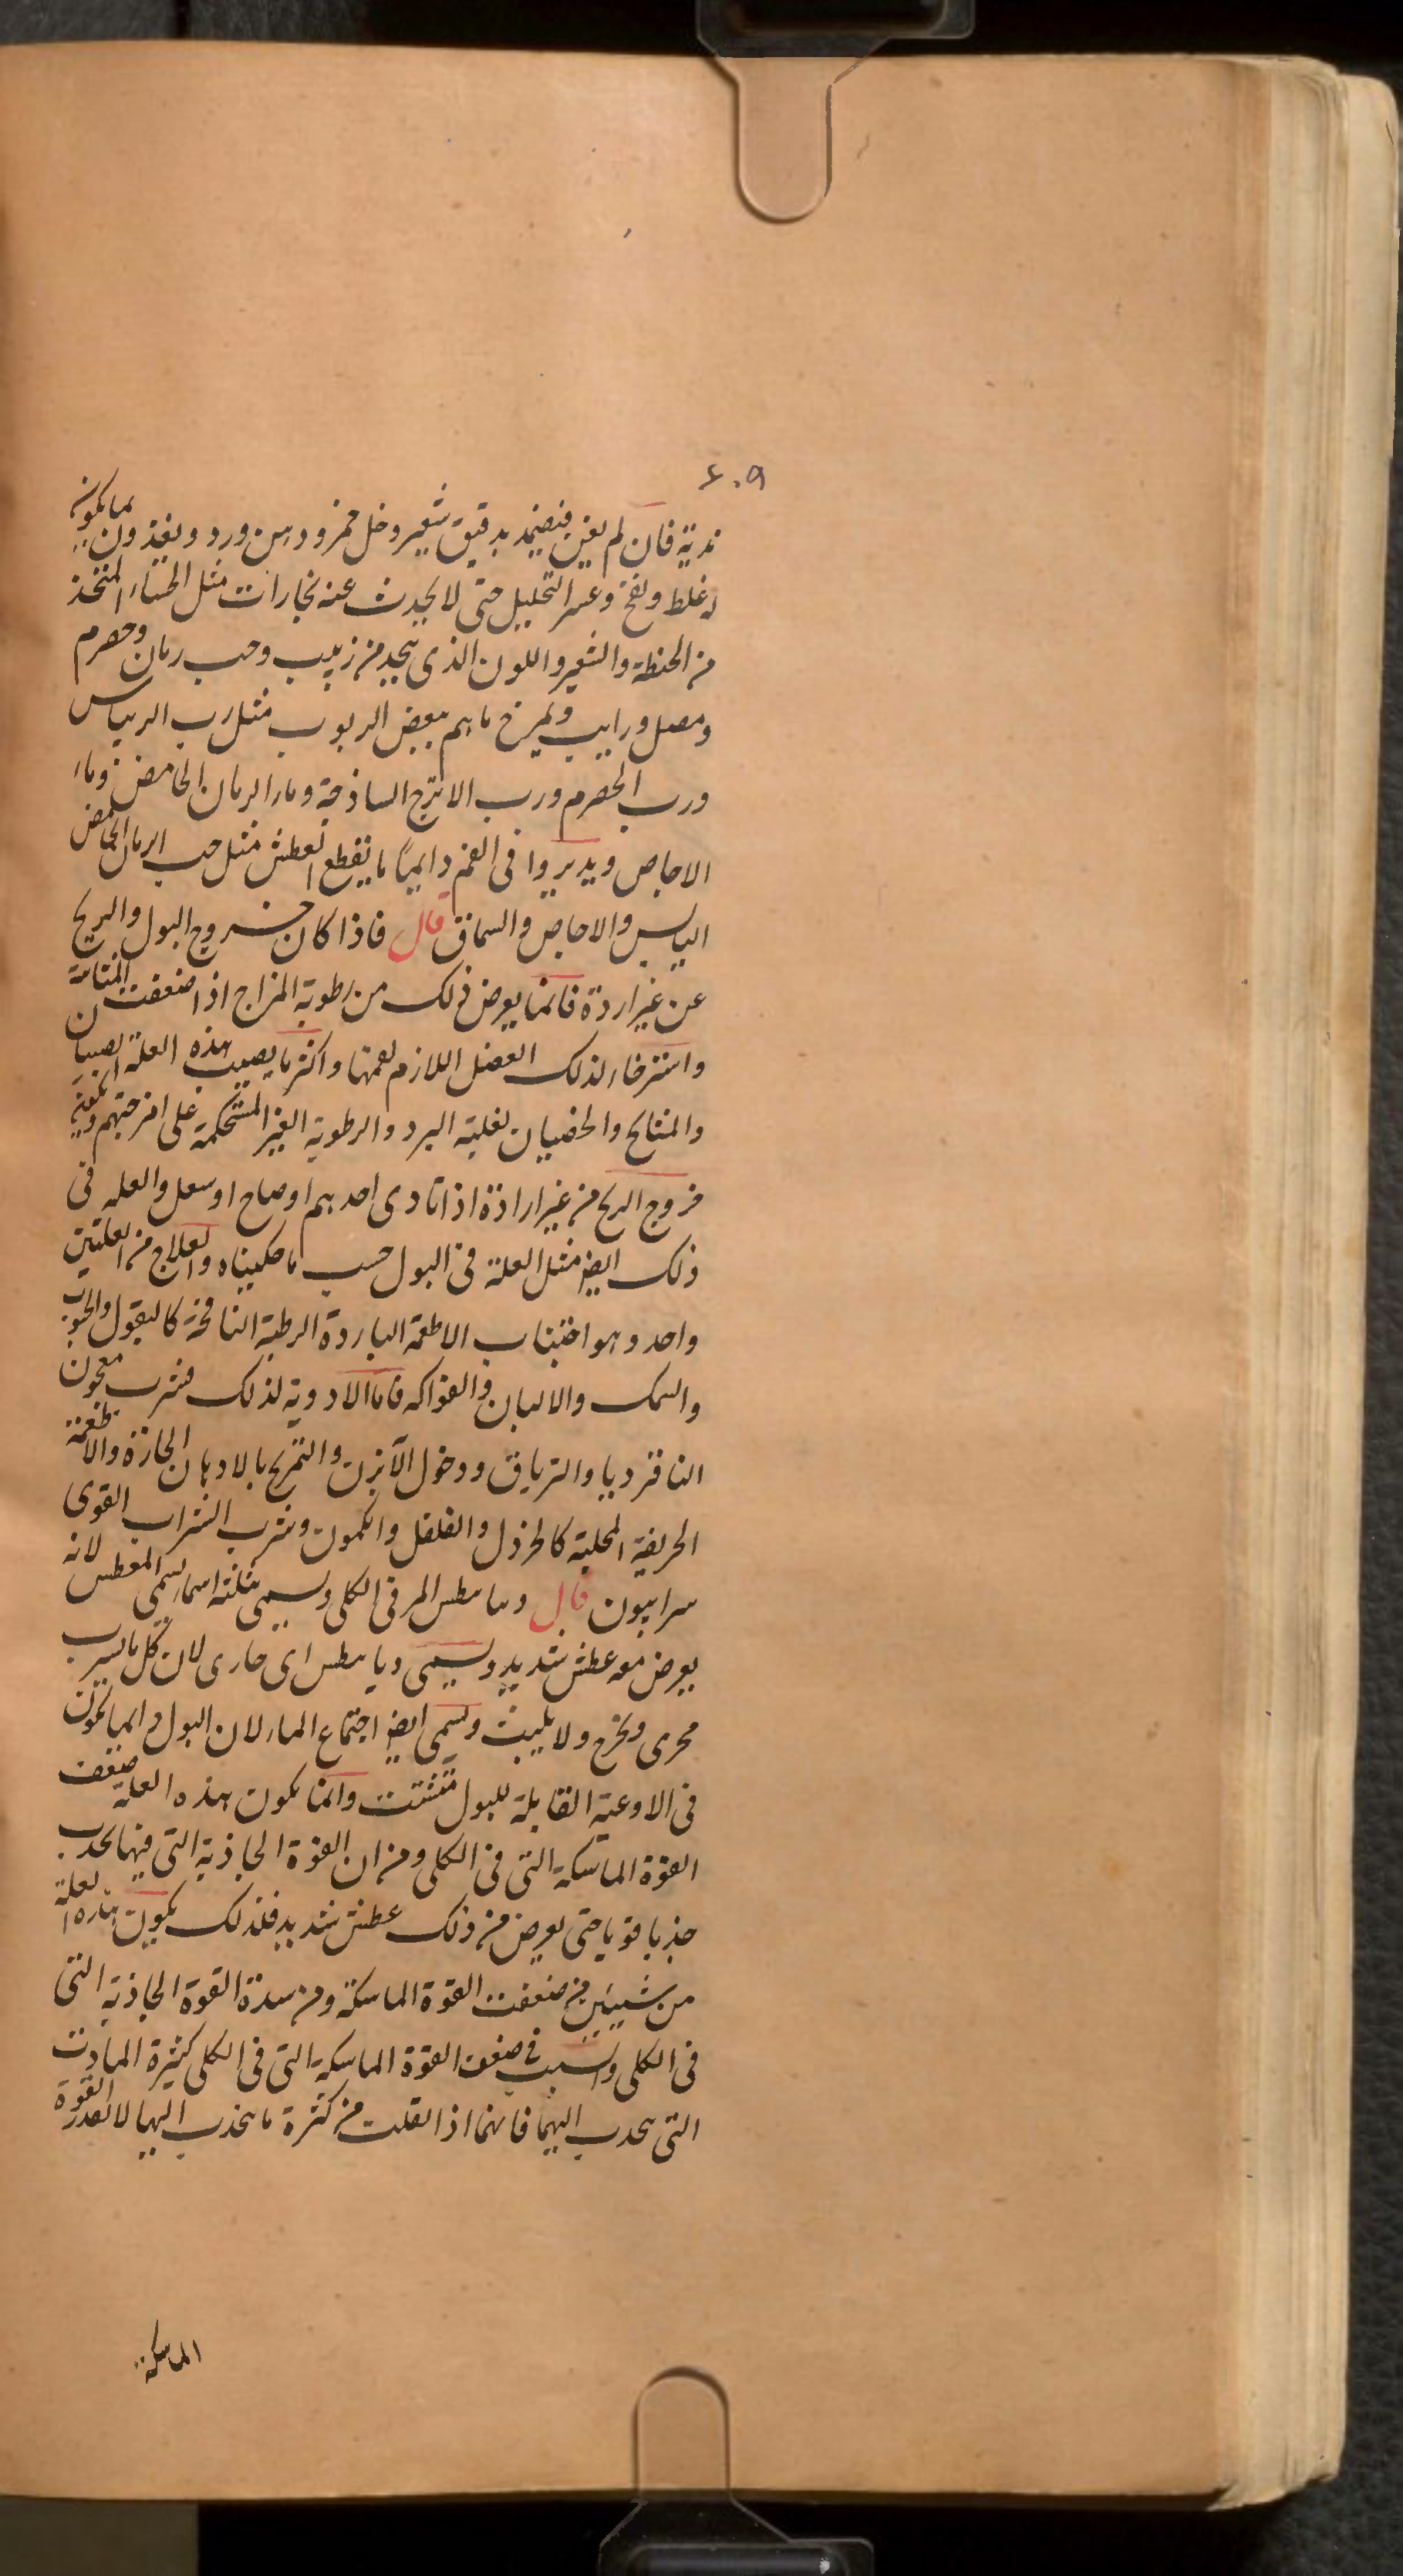 ٤٠٩
ندية فان لم يغن فضمد بدقيق شعير وخل خمر ودهن ورد ويغذون بما يكون
له غلظ ونفخ وعسر التحليل حتى لا يحدث عنه بخارات مثل الحساء المتخذ
من الحنطة والشعير واللون الذى يتخذ من زبيب وحب رمان وحصرم
ومصل ورايب ويمزج ماءهم ببعض الربوب مثل رب الريباس
ورب الحصرم ورب الاترج الساذجة وماء الرمان الحامض وماء
الاجاص ويديروا فى الفم دايماً ما يقطع العطش مثل حب الرمان الحامض
اليابس والاجاص والسماق قال فاذا كان خروج البول والريح
عن غير اردة فانما يعرض ذلك من رطوبة المزاج اذا ضعفت المثانة
واسترخاء لذلك العضل اللازم لفمها واكثر ما يصيب هذه العلة الصبيان
والمشايخ والخصيان لغلبة البرد والرطوبة الغير المستحكمة على امزجتهم
خروج الريح من غير ارادة اذا نادى احدهم او صاح او سعل والعلة فى
ذلك ايض مثل العلة فى البول حسب ما حكيناه والعلاج من العلتين
واحد وهو اجتناب الاطعمة الباردة الرطبة النافخة كالبقول والحبوب
والسمك والالبان والفواكه فاما الادوية لذلك فشرب معجون
النا قرديا والترياق ودخول الآبزن والتمريخ بالادهان الحارة والاطعمة
الحريفة المحللة كالخردل والفلفل والكمون وشرب الشراب القوى
سرابيون قال ديابيطس المر فى الكلى ويسمى بثلثة اسماء يسمى المعطس لانه
يعرض معه عطش شديد ويسمى ديابيطس اى جارى لان كل ما يشرب
يجرى ويخرج ولا يلبث ويسمى ايض اجتماع الماء لان البول دايما يكون
فى الاوعية القابلة للبول متشتت وانما يكون هذه العلة ضعفت
القوة الماسكة التى فى الكلى ومن ان القوة الجاذبة التى فيها يجذب
جذبا قويا حتى يعرض من ذلك عطش شديد فلذلك يكون هذه العلة
من شيئين من ضعفت القوة الماسكة ومن شدة القوة الجاذبة التى
فى الكلى والسبب فى ضعف القوة الماسكة التى فى الكلى كثرة المادت
التى يجذب اليهما فانهما اذا ثقلت من كثرة ما يجذب اليها لا تقدر القوة
الماسكة